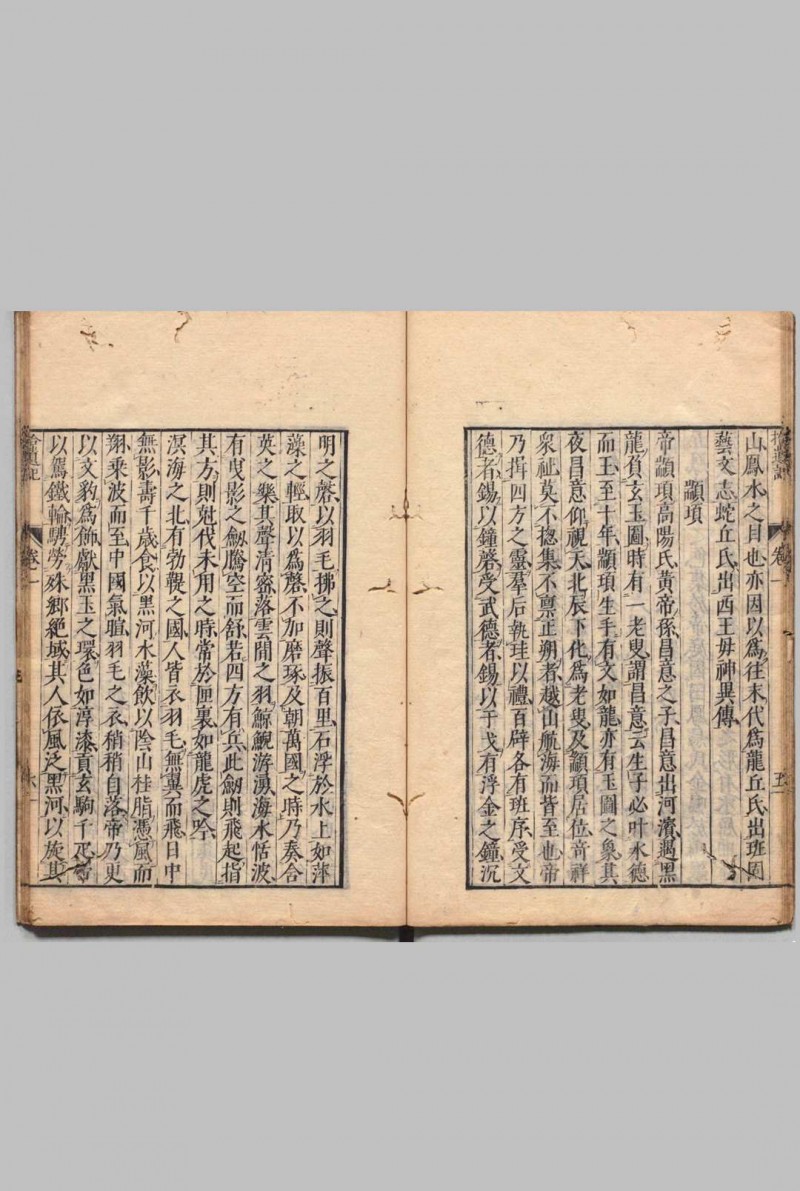 山鳳水之目也亦因以爲往末代爲龍丘氏出班固
藝文志蛇丘氏出西王毋神異傳
顓頊
帝顓頊高陽氏黃帝孫昌意之子昌意出河濱遇黑
龍負玄玉圖時有一老叟謂昌意云生子必叶水德
而王至十年顓頊生手有文如龍亦有玉圖之象其
夜昌意仰視天北辰下化爲老叟及顓頊居位竒祥
衆祉莫不揔集不稟正朔者越山航海而皆至也帝
乃揖四方之靈羣后執珪以禮百辟各有班序受文
德者錫以鐘磬受武德者錫以干戈有浮金之鐘沉
明之磬以羽毛拂之則聲振百里石浮於水上如萍
藻之輕取以爲磬不加磨琢及朝萬國之時乃奏含
英之樂其聲清密落雲間之羽鯨鯢游湧海水恬波
有曳影之劔騰空而舒若四方有兵此劔則飛起指
其方則尅伐未用之時常於匣裏如龍虎之吟
溟海之北有勃鞮之國人皆衣羽毛無翼而飛日中
無影壽千歲食以黑河水藻飲以陰山桂脂憑風而
翔乘波而至中國氣暄羽毛之衣稍稍自落帝乃更
以文豹爲飾獻黑玉之環色如淳漆貢玄駒千疋帝
以駕鐵輪騁勞殊鄉絶域其人依風泛黑河以旋其
拾遺記
卷一
五
拾遺記
卷一
六